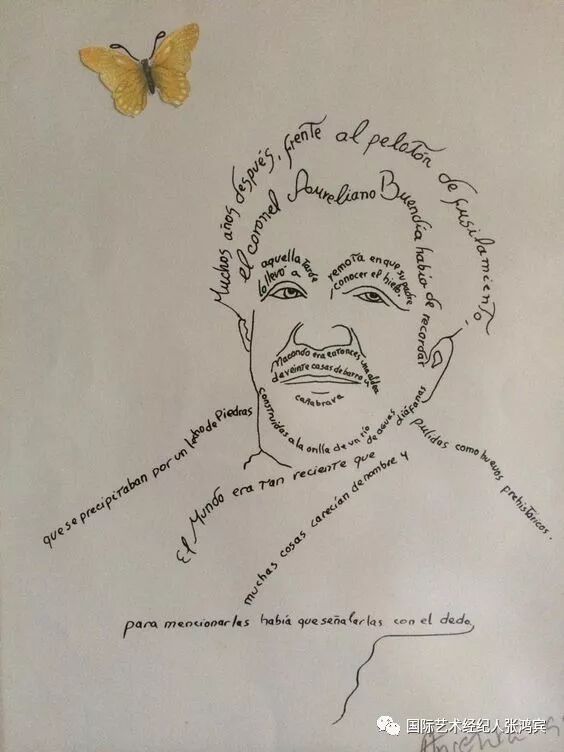 Muchos años después, frente al pelotón de fusilamiento
el coronel Aureliano Buendía había de recordar
aquella tarde
remota en que su padre
lo llevó a
conocer el hielo.
Macondo era entonces una aldea
de veinte casas de barro y
cañabrava
construidas a la orilla de un río
de aguas
diáfanas
que se precipitaban por un lecho de Piedras
pulidas como huevos prehistóricos.
El Mundo era tan reciente que
muchas cosas carecían de nombre y
para mencionarlas había que señalarlas con el dedo
国际艺术经纪人张鸿宾